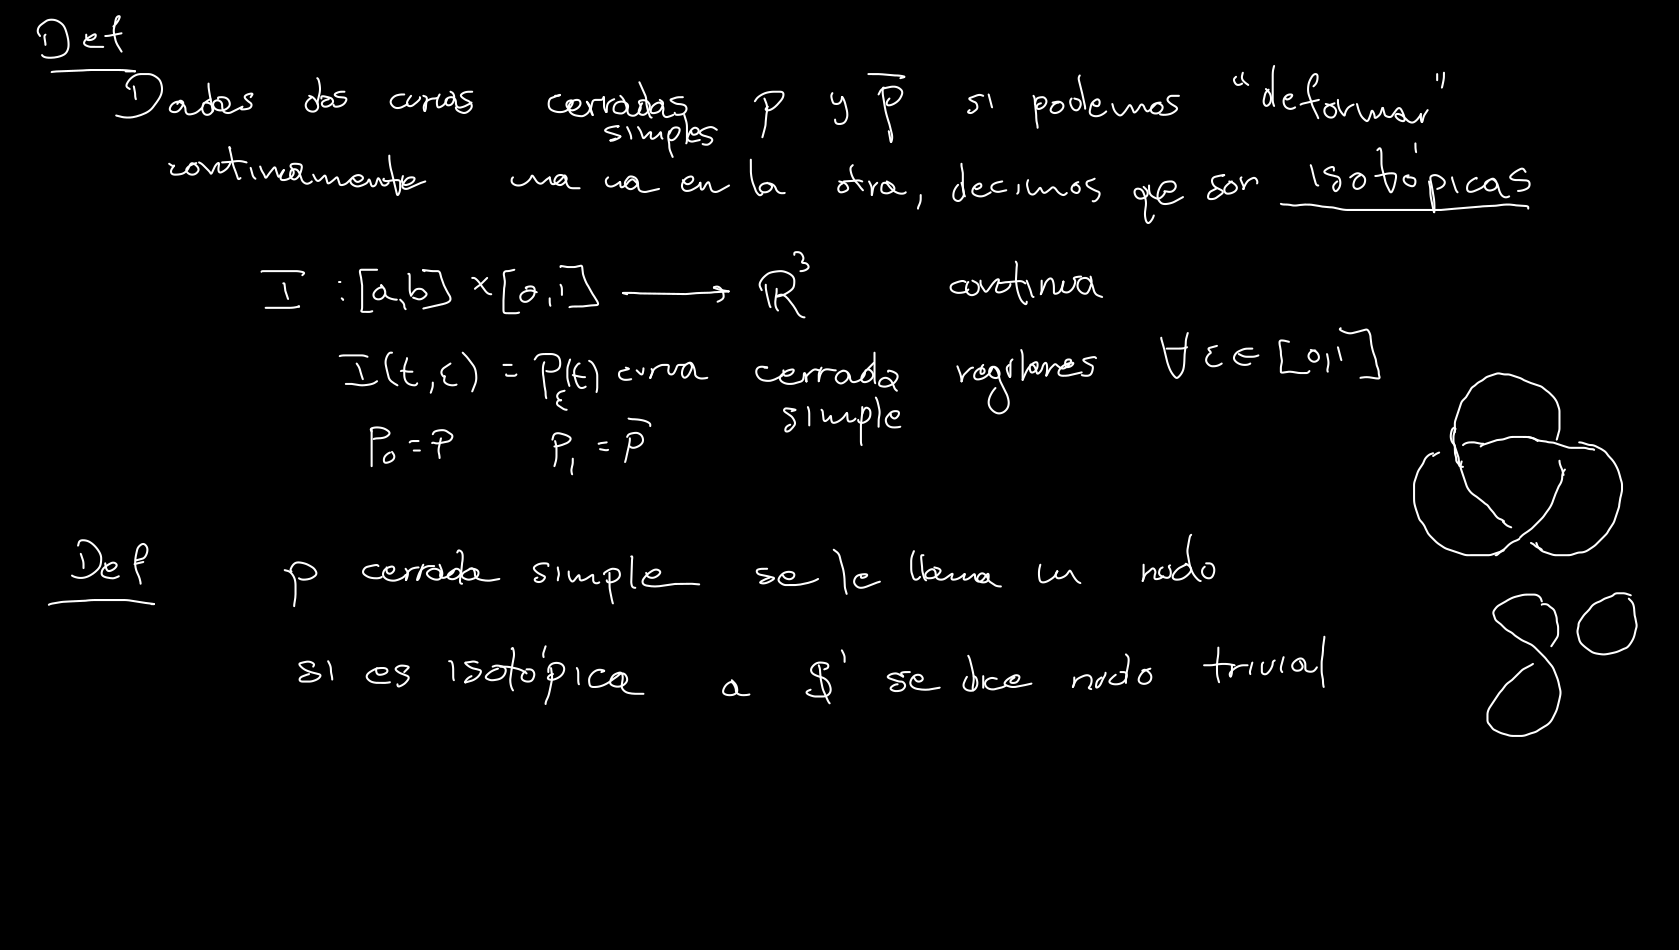 Def
Dadas dos curvas cerradas simples p y p̅ si podemos "deformar"
continuamente una en la otra, decimos que son isotópicas
I : [a,b] × [0,1] ⟶ ℝ³ continua
I(t,ε) = P_ε(t) curva cerrada simple regulares ∀ ε ∈ [0,1]
P₀ = P P₁ = P̅
Def p cerrada simple se le llama un nudo
si es isotópica a $¹ se dice nudo trivial